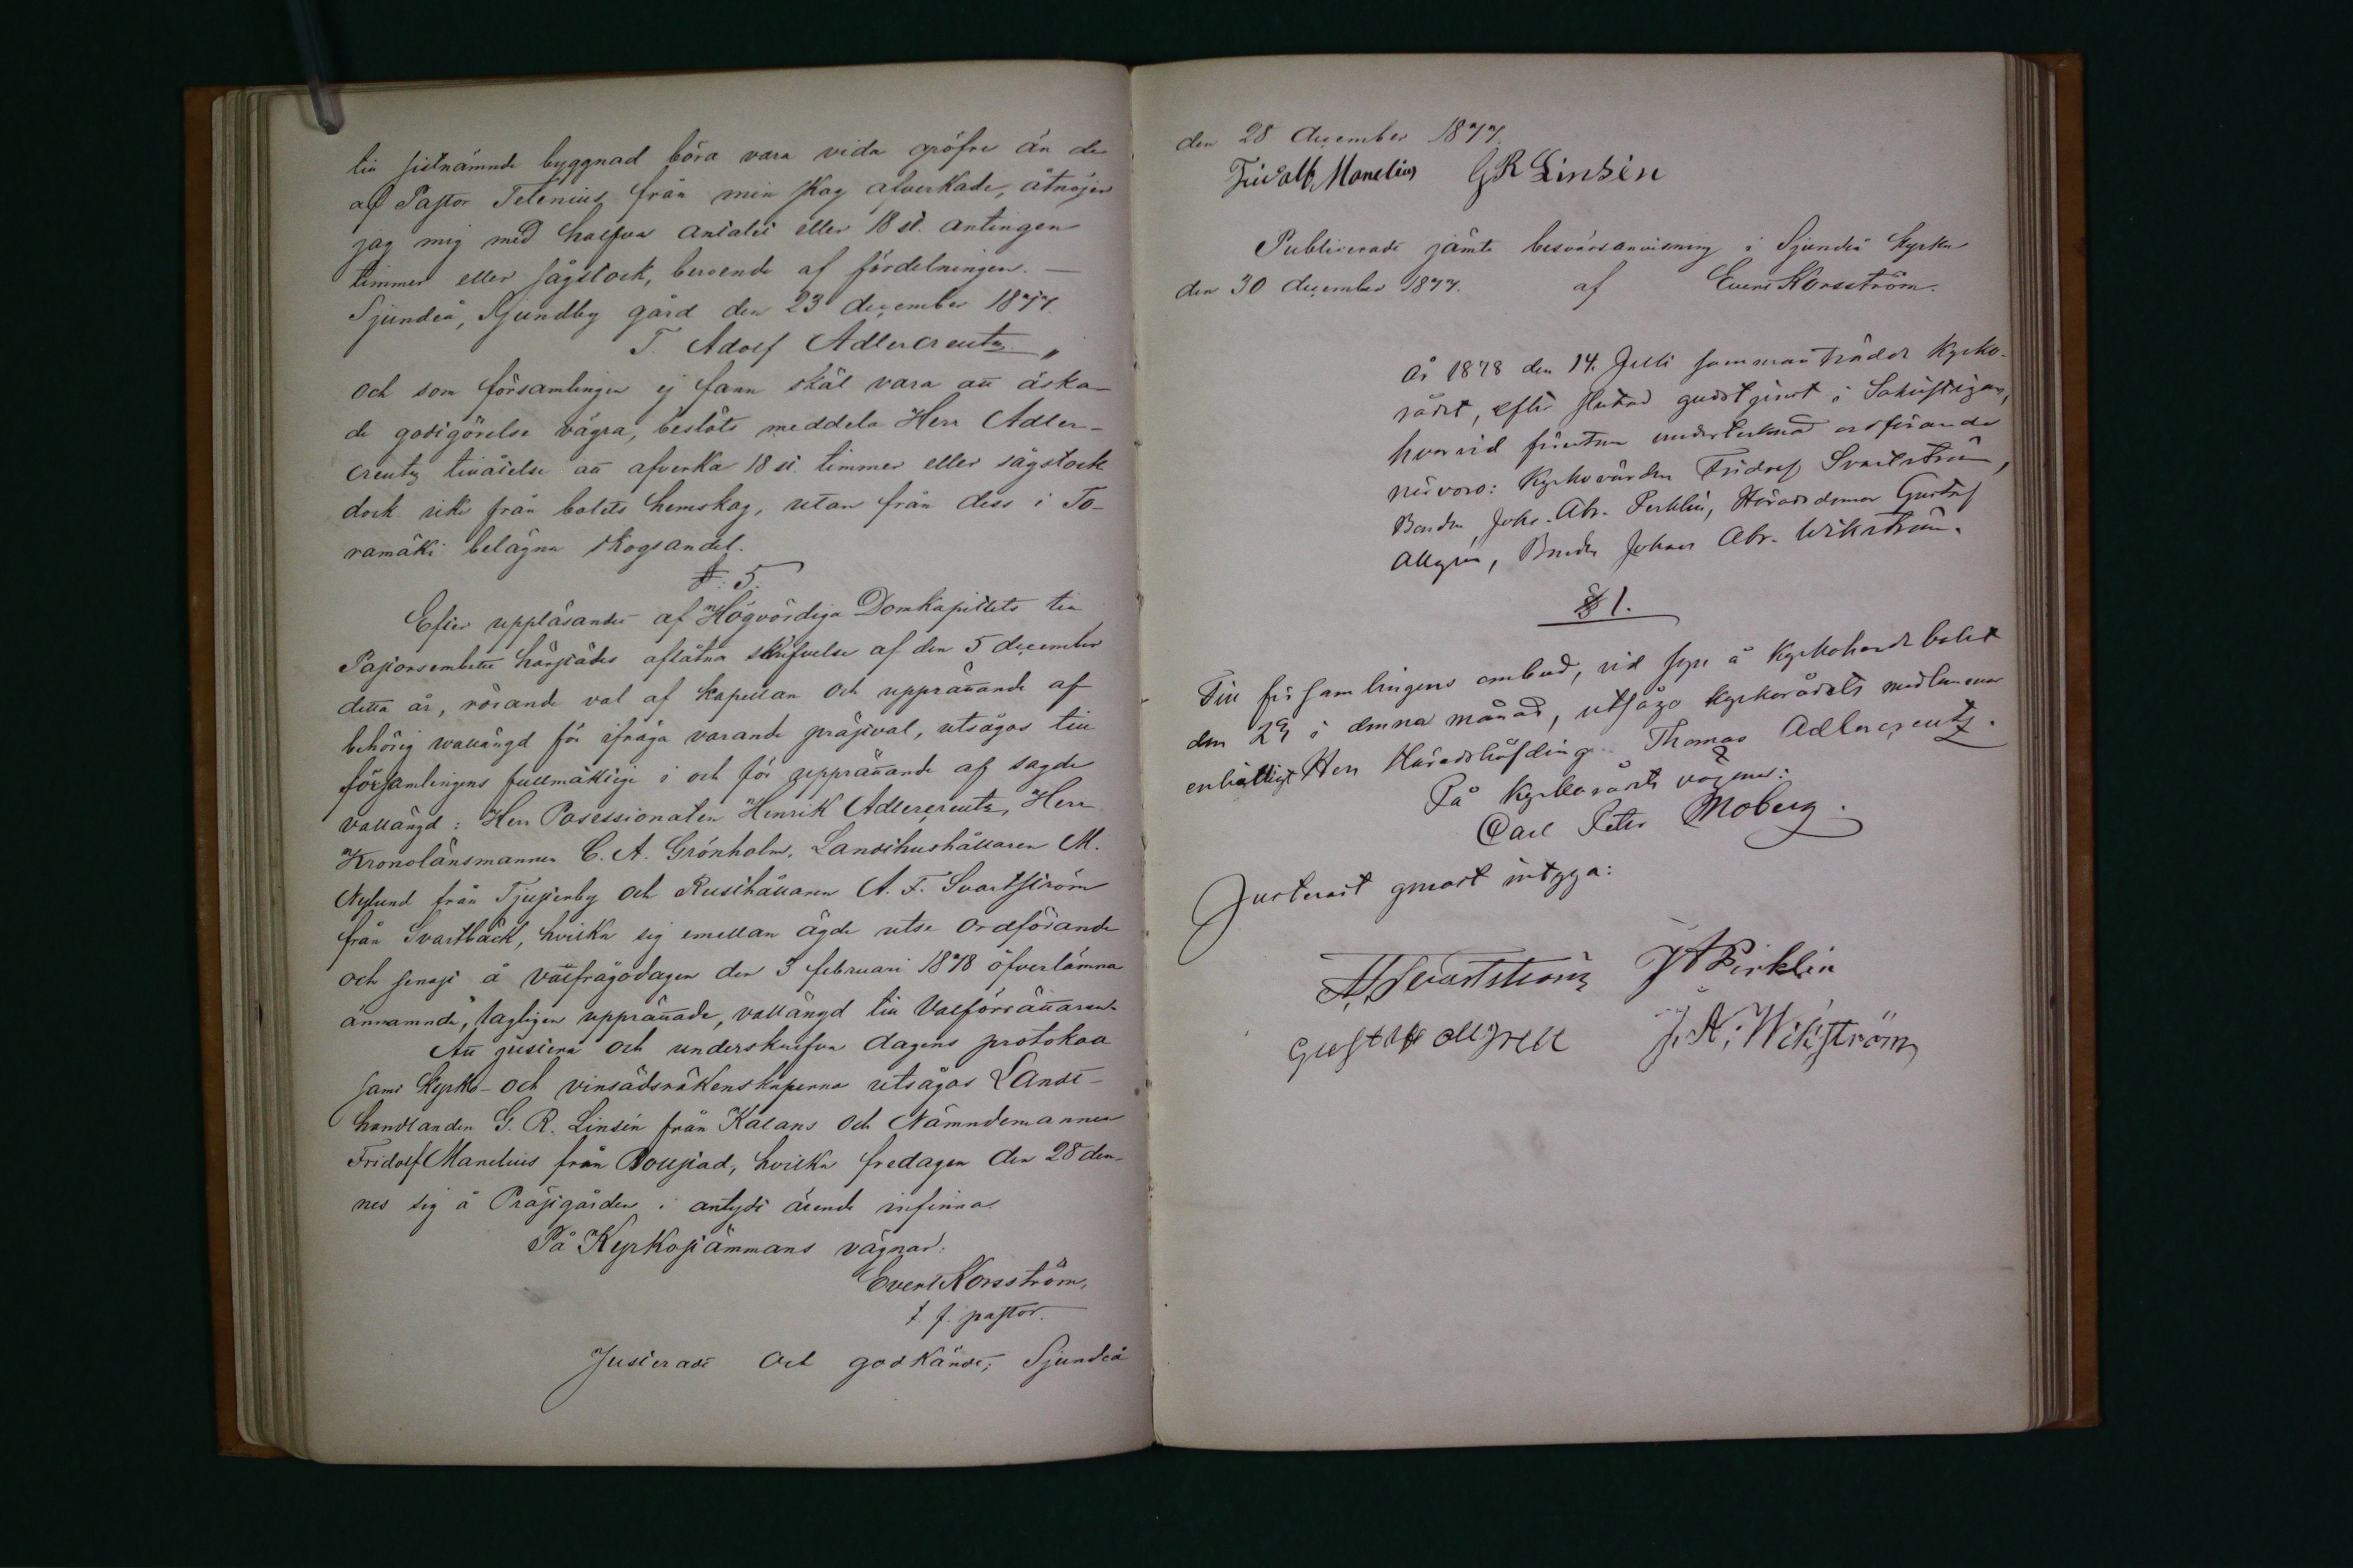 till sistnämnde byggnad böra vara vida gröfre än de
af Pastor Telenius från min skog afverkade, åtnöjer
jag mig med halfva antalet eller 18 st. antingen
timmer eller sågstock, beroende af fördelningen. —
Sjundeå, Sjundby gård den 23 december 1877.
T. Adolf Adlercreutz "
och som församlingen ej fann skäl vara att äska-
de godtgörelse vägra, beslöts meddela Herr Adler-
creutz tillåtelse att afverka 18 st. timmer eller sågstock
dock icke från bolets hemskog, utan från dess i To-
ramäki belägna skogsandel.
§: 5.
Efter uppläsandet af Högvördiga Domkapitlets till
Pastorsembetet härstädes aflåtna skrifvelse af den 5 december
detta år, rörande val af kapellan och upprättande af
behörig vallängd för ifråga varande prästval, utsågos till
församlingens fullmäktige i och för upprättande af sagde
vallängd: Herr Possessionaten Henrik Adlercreutz, Herr
Kronolänsmannen C. A. Grönholm, Landthushållaren M.
Nylund från Tjusterby och Rusthållaren A. F. Svartström
från Svartbäck, hvilka sig emellan ägde utse ordförande
och senast å valfrågodagen den 3 februari 1878 öfverlämna
ännämnde, lagligen upprättade, vallängd till Valförrättaren.
Att justera och underskrifva dagens protokoll
samt Kyrko- och vinsädsräkenskaperna utsågos Landt-
handlanden G. R. Linsén från Kalans och Nämndemannen
Fridolf Manelius från Bollstad, hvilka fredagen den 28 den-
nes sig å Prästgården i antydt ärende infinna.
På Kyrkostämmans vägnar:
Evert Korsström,
t. f. pastor.
Justeradt och godkändt; Sjundeå
den 28 december 1877.
Fridolf Manelius GR Linsén
Publiceradt jämte besvärsanvisning i Sjundeå kyrka
den 30 december 1877. af Evert Korsström.
År 1878 den 14. Juli sammanträdde Kyrko-
rådet, efter slutad gudstjenst i Sakristigan,
hvarvid förutom undertecknad ordförande
närvoro: Kyrkovärden Fridolf Svartström,
Bonden Joh. Abr. Perklén, Häradsdomar Gustaf
Allgren, Bonden Johan Abr. Wikström.
§ 1.
Till församlingens ombud, vid syn å Kyrkoherde bolet
den 29 i denna månad, utsågo kyrkorådets medlemmar
enhälligt Herr Häradshöfding Thomas Adlercreutz.
På Kyrkorådets vägnar:
Carl Peter Moberg.
Justerast genast intyga:
A. F. Svartström J A Pirklén
Gustaf Allgren J. A. Wikström